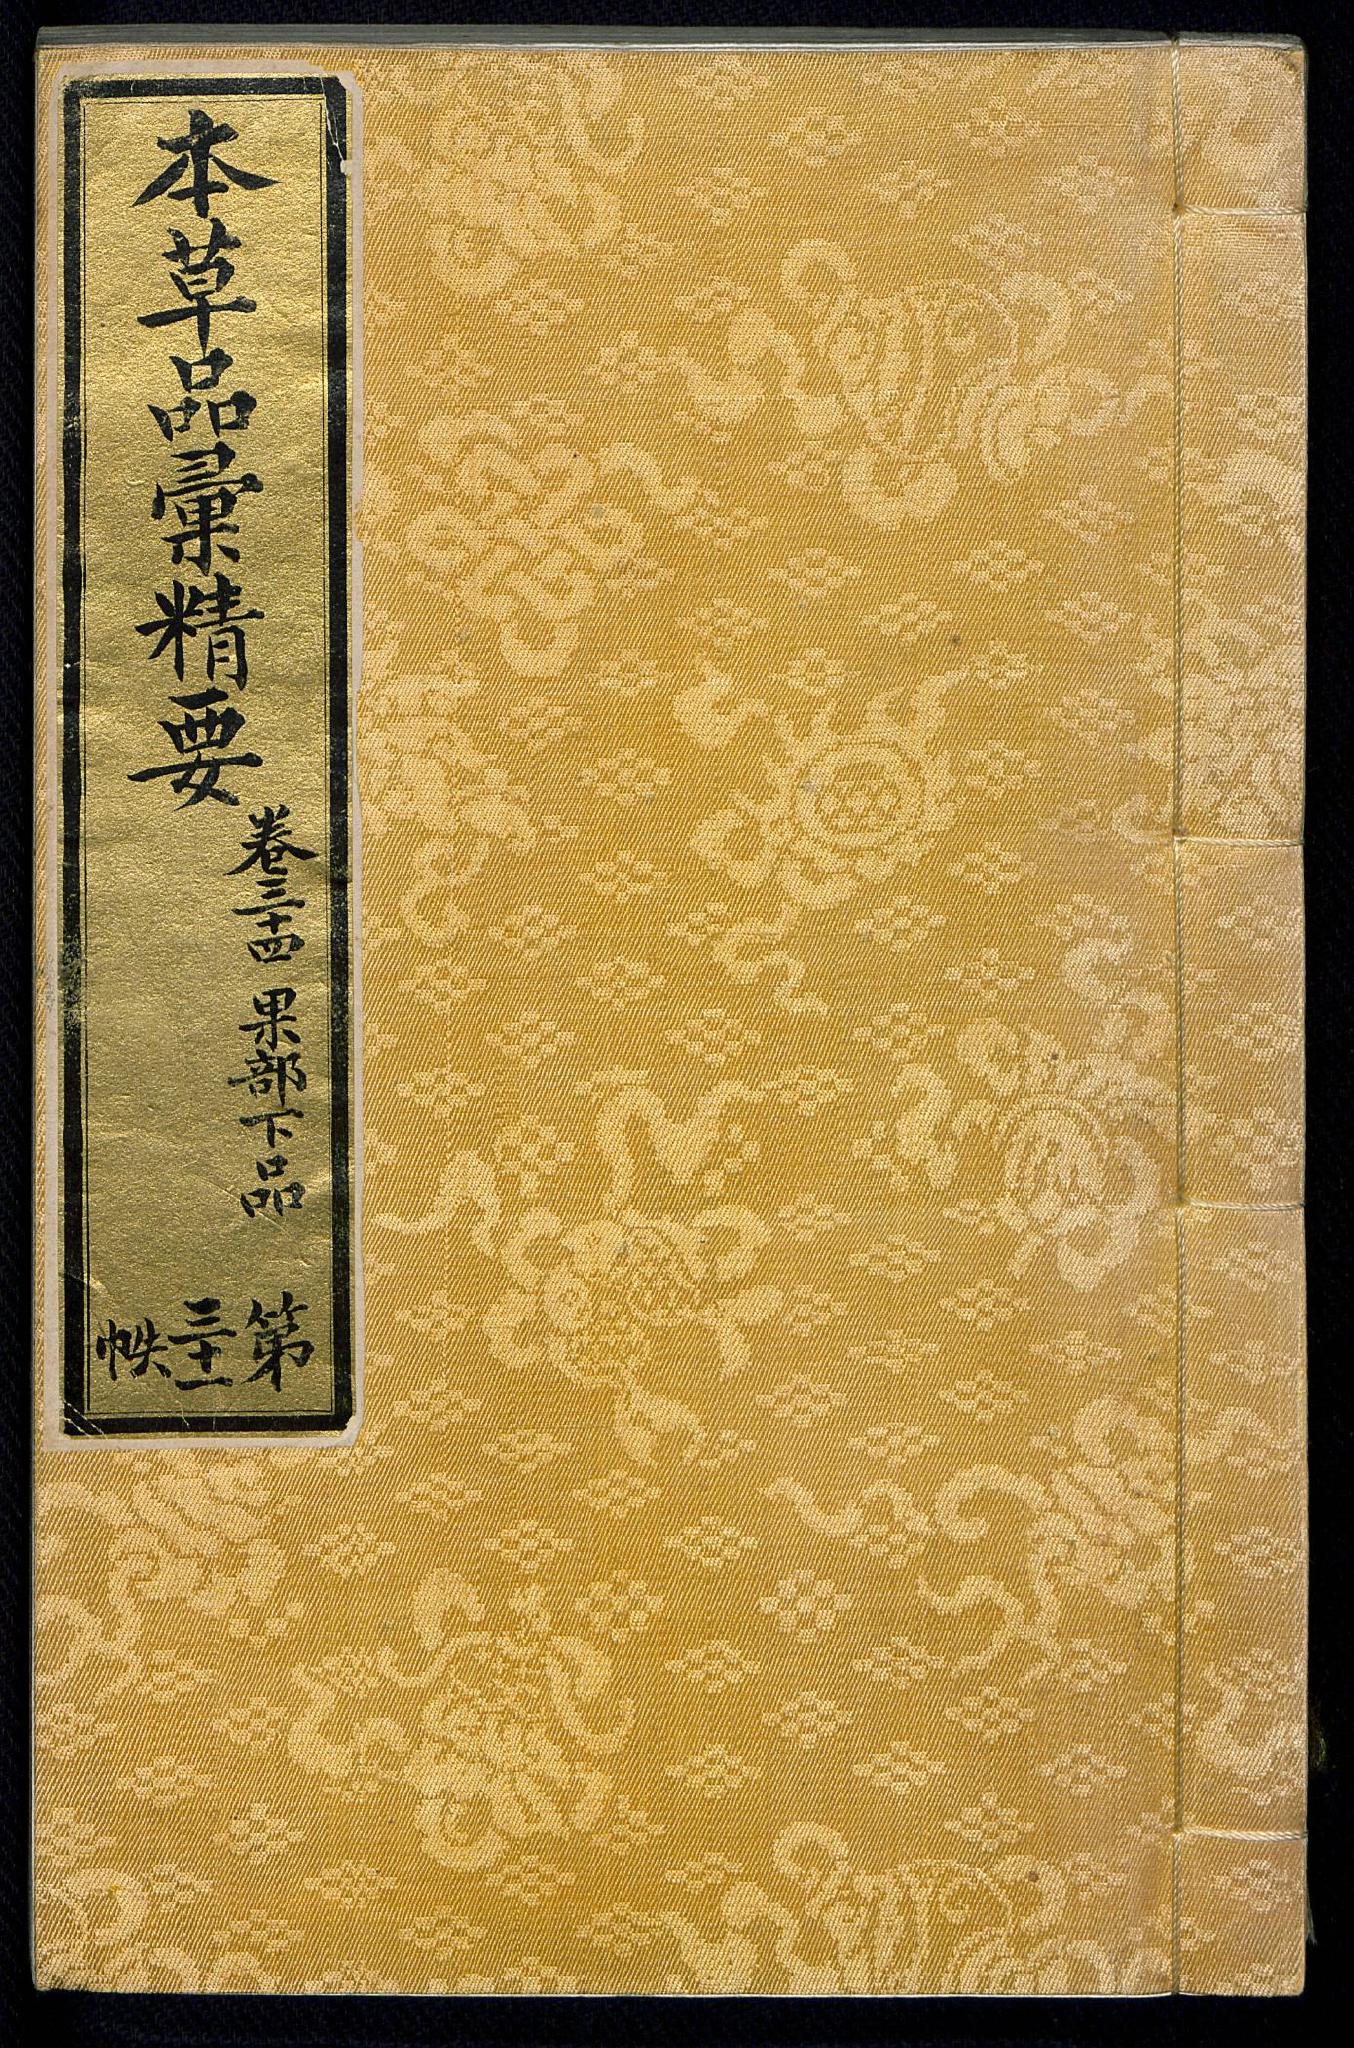 本草品彙精要
卷三十四 果部下品
第三十一帙